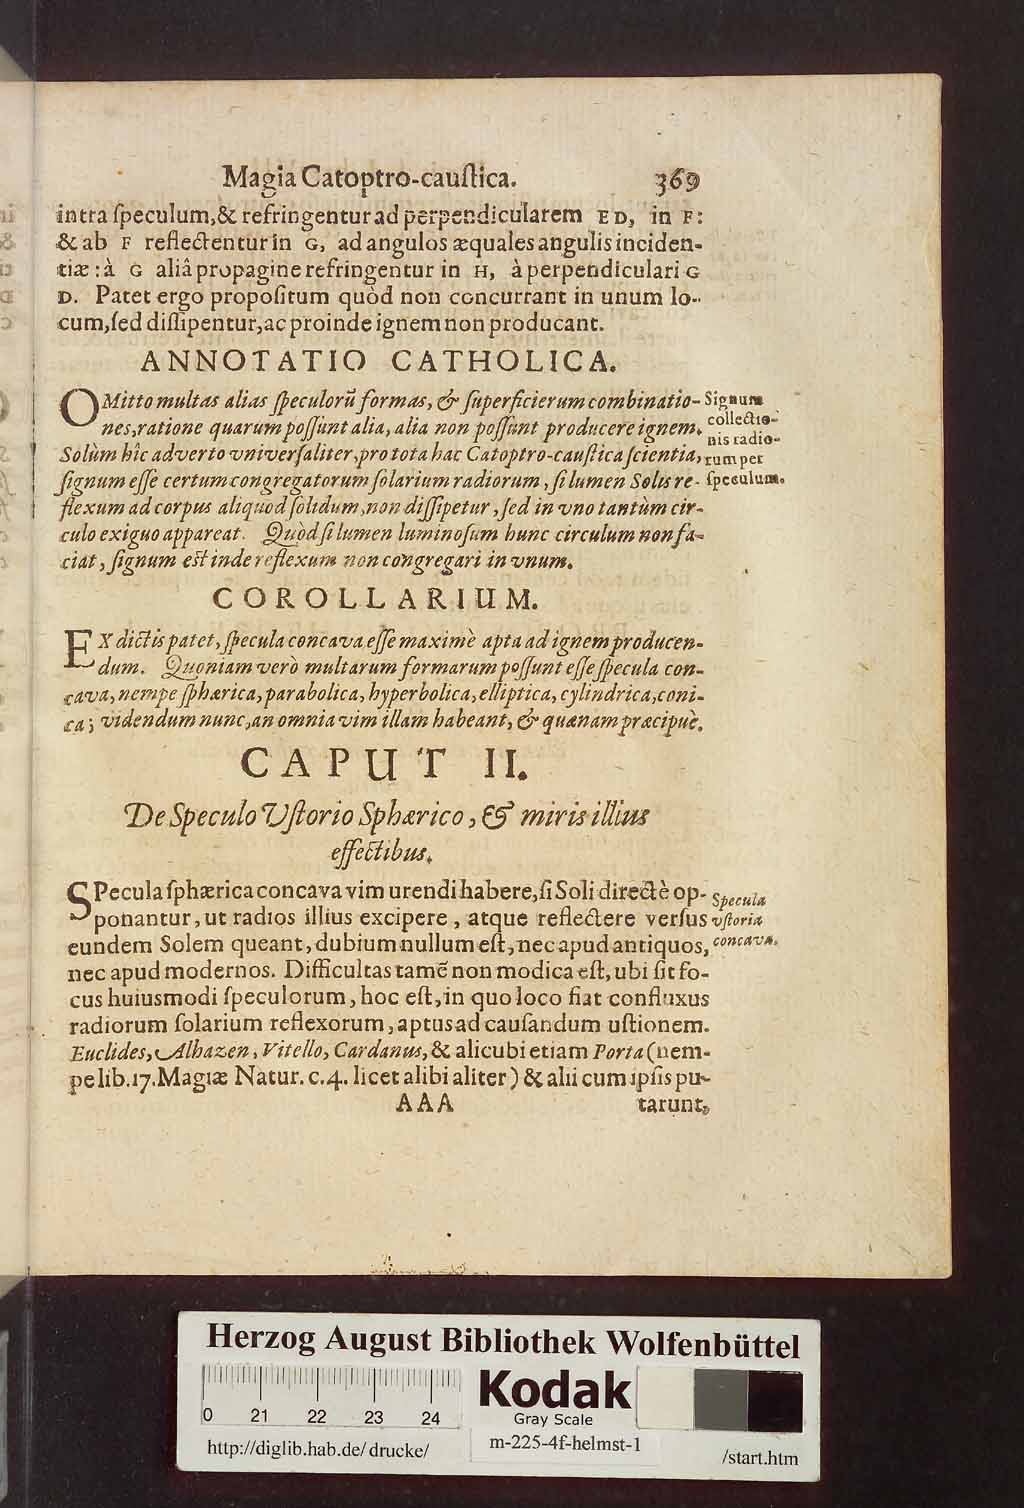 Magia Catoptro-cauſtica. 369
intra ſpeculum,& refringentur ad perpendicularem ED, in F:
& ab F reflectentur in G, ad angulos æquales angulis inciden-
tiæ: à G aliâ propagine refringentur in H, à perpendiculari G
D. Patet ergo propoſitum quòd non concurrant in unum lo-
cum, ſed diſſipentur, ac proinde ignem non producant.
ANNOTATIO CATHOLICA.
OMitto multas alias ſpeculorũ formas, & ſuperficierum combinatio-
nes, ratione quarum poſſunt alia, alia non poſſunt producere ignem.
Solùm hîc adverto vniverſaliter, pro tota hac Catoptro-cauſtica ſcientia,
ſignum eſſe certum congregatorum ſolarium radiorum, ſi lumen Solis re-
flexum ad corpus aliquod ſolidum, non diſſipetur, ſed in vno tantùm cir-
culo exiguo appareat. Quòd ſi lumen luminoſum hunc circulum non fa-
ciat, ſignum eſt inde reflexum non congregari in vnum.
Signum
collectio-
nis radio-
rum per
ſpeculum.
COROLLARIUM.
EX dictis patet, ſpecula concava eſſe maximè apta ad ignem producen-
dum. Quoniam verò multarum formarum poſſunt eſſe ſpecula con-
cava, nempe ſphærica, parabolica, hyperbolica, elliptica, cylindrica, coni-
ca; videndum nunc, an omnia vim illam habeant, & quænam præcipuè.
CAPUT II.
De Speculo Vſtorio Sphærico, & miris illius
effectibus.
SPecula ſphærica concava vim urendi habere, ſi Soli directè op-
ponantur, ut radios illius excipere, atque reflectere verſus
eundem Solem queant, dubium nullum eſt, nec apud antiquos,
nec apud modernos. Difficultas tamẽ non modica eſt, ubi ſit fo-
cus huiusmodi ſpeculorum, hoc eſt, in quo loco fiat confluxus
radiorum ſolarium reflexorum, aptus ad cauſandum uſtionem.
Euclides, Alhazen, Vitello, Cardanus, & alicubi etiam Porta (nem-
pe lib. 17. Magiæ Natur. c. 4. licet alibi aliter) & alii cum ipſis pu-
Specula
vſtoria
concava.
AAA tarunt,
Herzog August Bibliothek Wolfenbüttel
0 21 22 23 24
Kodak
Gray Scale
http://diglib.hab.de/drucke/ m-225-4f-helmst-1 /start.htm